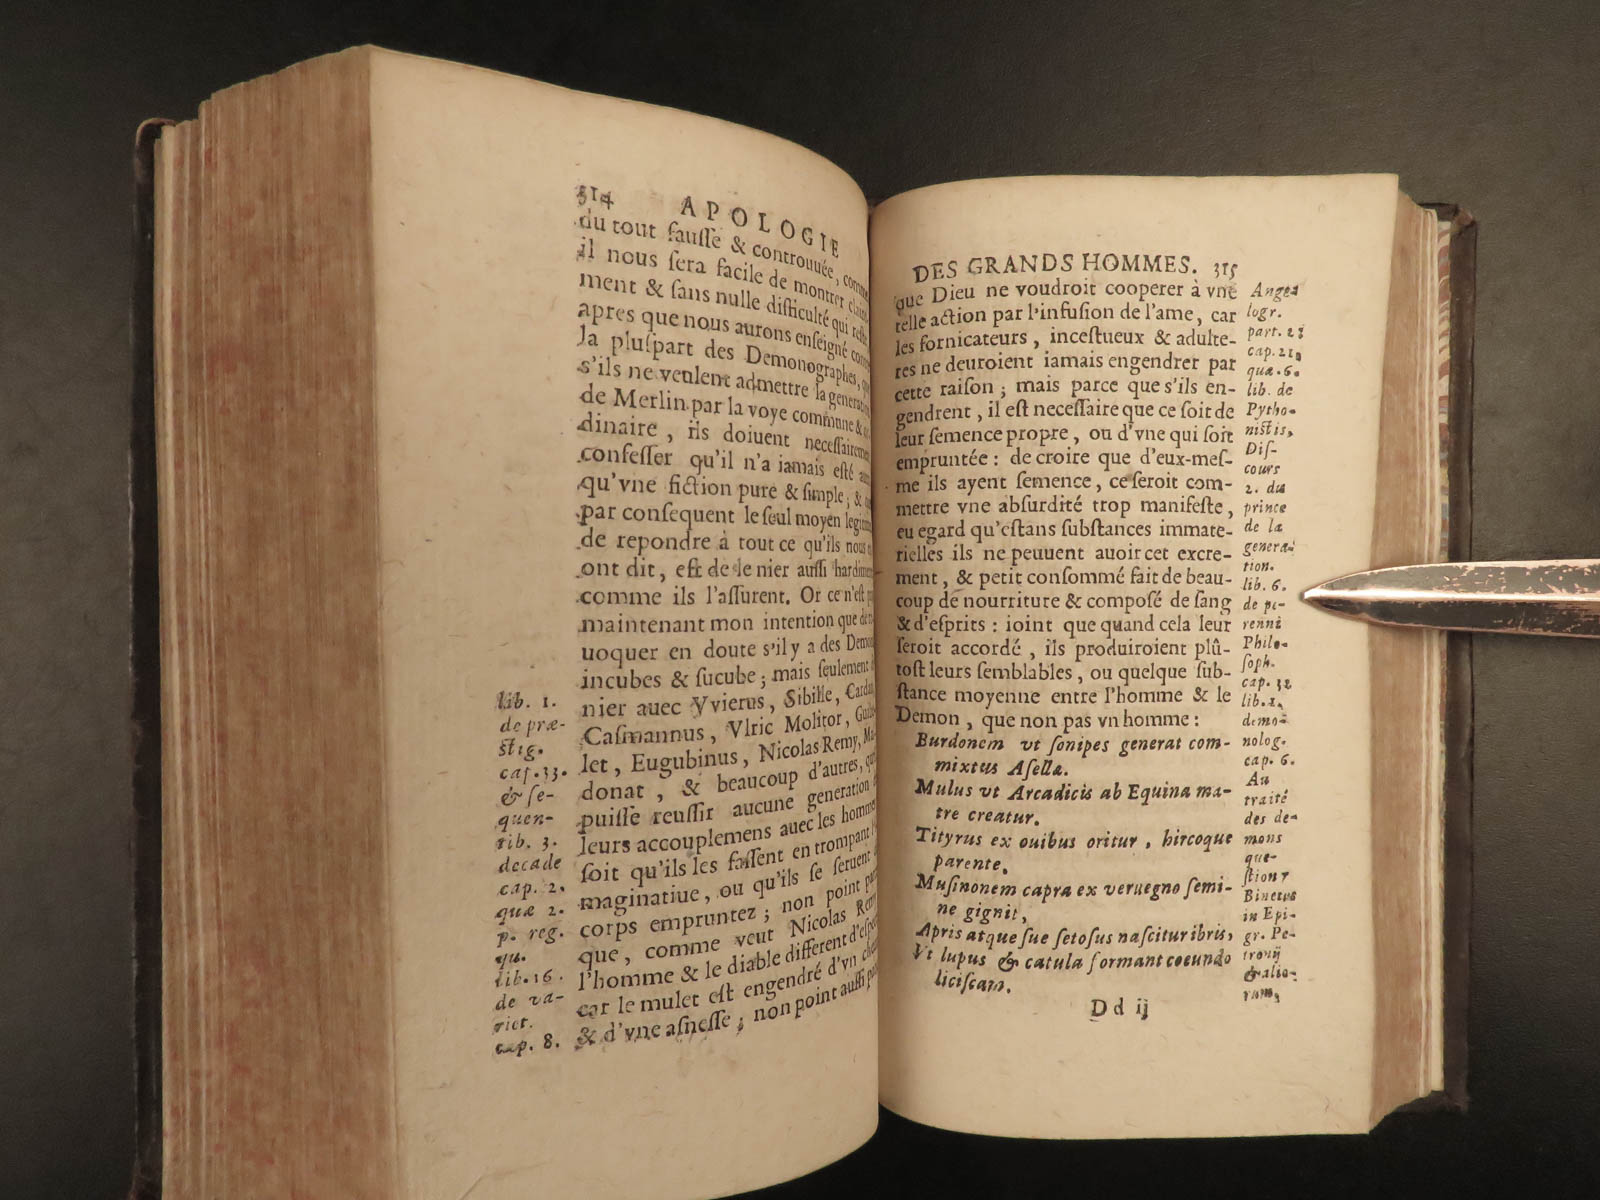 314 APOLOGIE
du tout fauſſe & controuuée, comme
il nous ſera facile de montrer claire-
ment & ſans nulle difficulté qui reſte,
apres que nous aurons enſeigné comme
la pluſpart des Demonographes,
s'ils ne veulent admettre la generation
de Merlin par la voye commune &
dinaire, ils doiuent neceſſairement
confeſſer qu'il n'a iamais eſté
qu'vne fiction pure & ſimple; &
par conſequent le ſeul moyen legitime
de repondre à tout ce qu'ils nous en
ont dit, eſt de le nier auſſi hardiment
comme ils l'aſſurent. Or ce n'eſt pas
maintenant mon intention que de re-
uoquer en doute s'il y a des Demons
incubes & ſucube; mais ſeulement de
nier auec Vvierus, Sibille, Cardan,
Caſmannus, Vlric Molitor,
let, Eugubinus, Nicolas Remy, Ma-
donat, & beaucoup d'autres, qu'il
puiſſe reuſſir aucune generation de
leurs accouplemens auec les hommes
ſoit qu'ils les faſſent en trompant l'i-
maginatiue, ou qu'ils ſe ſeruent de
corps empruntez; non point parce
que, comme veut Nicolas Remy
l'homme & le diable different d'eſpece
car le mulet eſt engendré d'vn cheual
& d'vne aſneſſe; non point auſſi parce
lib. 1.
de præ-
ſtig.
cap. 33.
& ſe-
quen-
lib. 3.
decade
cap. 2.
quæ 2.
p. reg.
qu.
lib. 16.
de va-
riet.
cap. 8.
DES GRANDS HOMMES. 315
que Dieu ne voudroit cooperer à vne
telle action par l'infuſion de l'ame, car
les fornicateurs, inceſtueux & adulte-
res ne deuroient iamais engendrer par
cette raiſon; mais parce que s'ils en-
gendrent, il eſt neceſſaire que ce ſoit de
leur ſemence propre, ou d'vne qui ſoit
empruntée: de croire que d'eux-meſ-
me ils ayent ſemence, ce ſeroit com-
mettre vne abſurdité trop manifeſte,
eu egard qu'eſtans ſubſtances immate-
rielles ils ne peuuent auoir cet excre-
ment, & petit conſommé fait de beau-
coup de nourriture & compoſé de ſang
& d'eſprits: ioint que quand cela leur
ſeroit accordé, ils produiroient plû-
toſt leurs ſemblables, ou quelque ſub-
ſtance moyenne entre l'homme & le
Demon, que non pas vn homme:
Burdonem vt ſonipes generat com-
mixtus Aſellæ.
Mulus vt Arcadicis ab Equina ma-
tre creatur.
Tityrus ex ouibus oritur, hircoque
parente.
Muſinonem capra ex veruegno ſemi-
ne gignit,
Apris atque ſue ſetoſus naſcitur ibris,
Vt lupus & catula formant coeundo
liciſcam.
Dd ij
Angel
logr.
part. 2.
cap. 21,
quæ. 6.
lib. de
Pytho-
niſtis,
Diſ-
cours
2. du
prince
de la
genera-
tion.
lib. 6.
de pe-
renni
Philo-
ſoph.
cap. 32
lib. 1.
demo-
nolog.
cap. 6.
Au
traité
des de-
mons
que-
ſtion 7
Binetus
in Epi-
gr. Pe-
tronij
& alio-
rum,